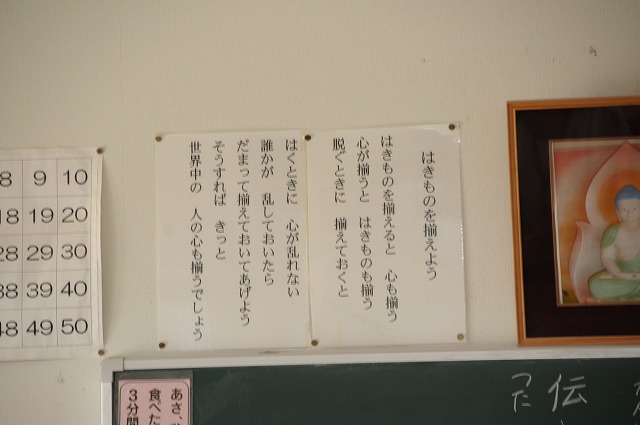 はきものを揃えよう
はきものを揃えると　心も揃う
心が揃うと　はきものも揃う
脱ぐときに　揃えておくと
はくときに　心が乱れない
誰かが　乱しておいたら
だまって揃えておいてあげよう
そうすれば　きっと
世界中の　人の心も揃うでしょう
8 9 10
18 19 20
28 29 30
38 39 40
48 49 50
あさ、
食べた
3分間
伝
った